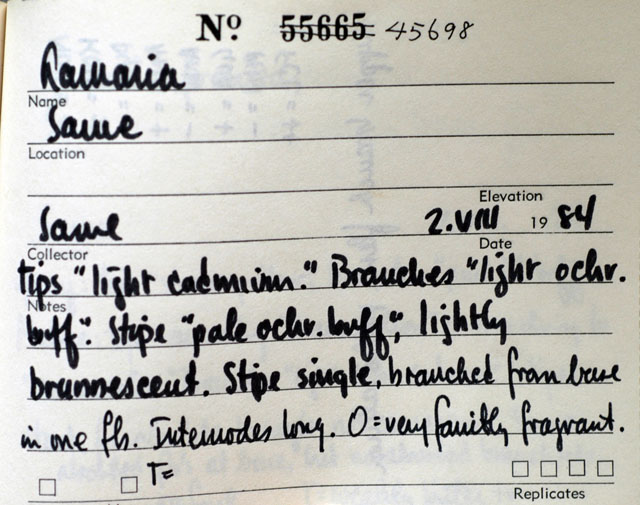 Nº 55665 45698
Ramaria
Name
Same
Location
Elevation
Same 2.VIII 19 84
Collector Date
tips "light cadmium." Branches "light ochr.
Notes
buff". Stipe "pale ochr. buff", lightly
brunnescent. Stipe single, branched from base
in one fb. Internodes long. O=very faintly fragrant.
T=
Replicates